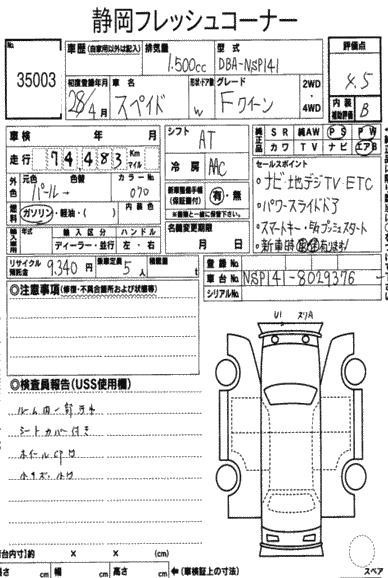 静岡フレッシュコーナー
No. 35003
車歴 (自家用以外は記入) 排気量 1.500cc 型式 DBA-NSP141
評価点 4.5
初度登録年月 28/4月 車名 スペイド 形状・ドア数 W グレード Fクイーン 2WD・4WD
内装補助評価 B
車検 年 月
シフト AT
純正品 SR 純AW PS PW
カワ TV ナビ エアB
走行 74483 Km マイル
冷房 AAC
セールスポイント
外色 元色 パール→ 色替 カラーNo 070
新車整備手帳(保証書付) 有・無
※書類と一緒に保管下さい
◦ナビ・地デジTV・ETC
◦パワースライドドア
燃料 ガソリン・軽油・( ) 内装色
名義変更期限
月 日
◦スマートキー・プッシュスタート
◦新車時
輸入車用 年式 輸入区分 ハンドル
ディーラー・並行 左・右
リサイクル預託金 9.340円 乗車定員 5人 積載量 t
登録No
車台No NSP141-8029376
シリアルNo
◎注意事項(修復・不具合箇所および状態等)
U1 スリA
◎検査員報告(USS使用欄)
シートカバー付き
小キズ・小凹
荷台内寸)約 × × (cm)
長さ cm 幅 cm 高さ cm ←(車検証上の寸法)
スペア